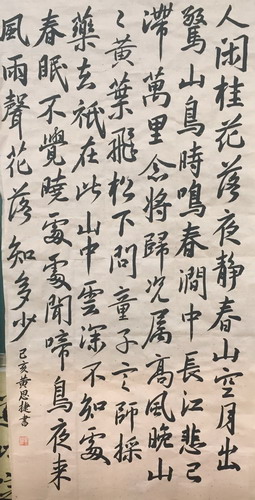 人闲桂花落夜静春山空月出
驚山鳥時鳴春澗中長江悲已
滯萬里念將歸況属高風晚山
〻黄葉飛松下問童子言師採
藥去祇在此山中雲深不知處
春眠不覺曉處處聞啼鳥夜来
風雨聲花落知多少
己亥黄思捷書